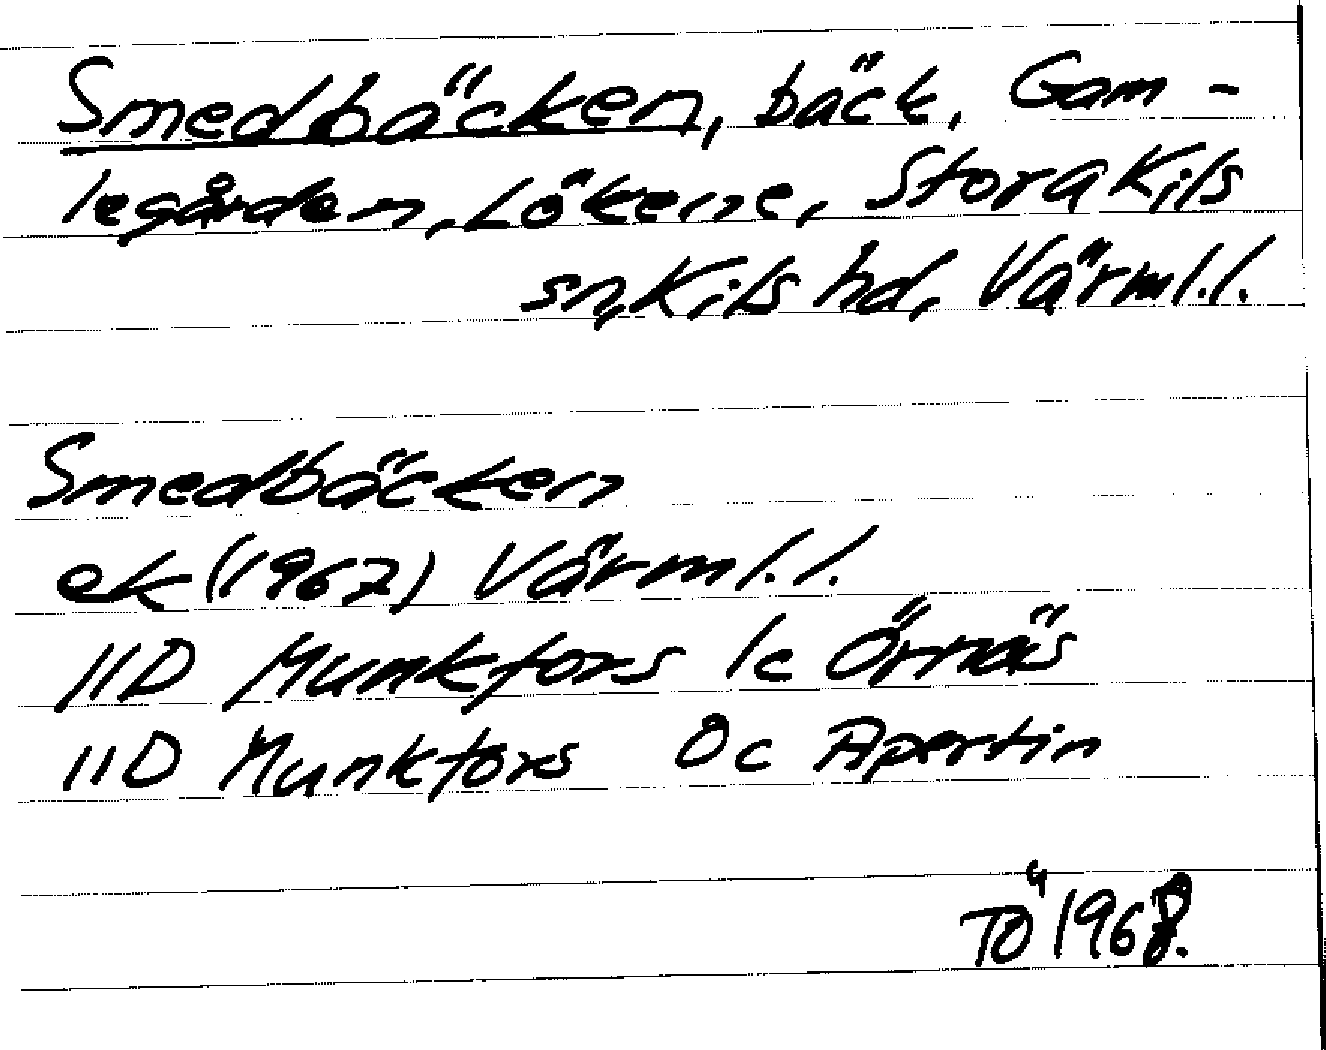 Smedbäcken, bäck, Gam-
legården, Lökene, Stora Kils
sn, Kils hd, Värml.l.
Smedbäcken
ek (1967) Värml.l.
11D Munkfors 1c Örnäs
11D Munkfors 0c Apertin
TÖ 1968.